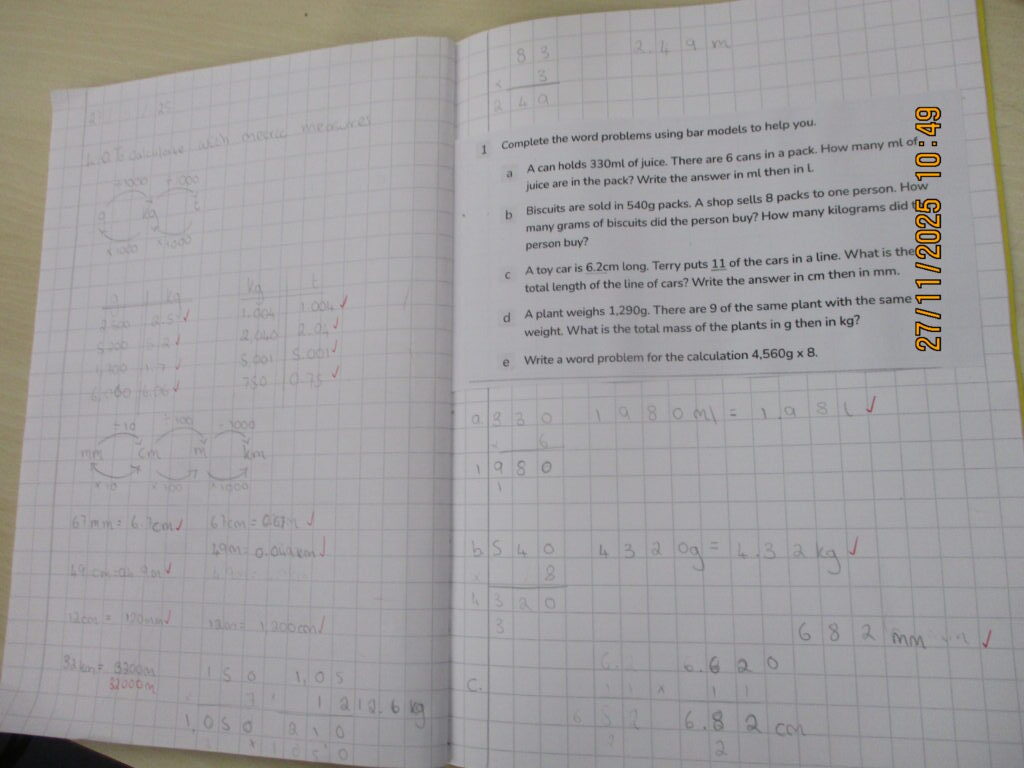 L.O To calculate with metric measures
÷1000 ÷1000
g kg t
×1000 ×1000
g kg
kg t
1.004✓
2.5✓
2.04✓
5,001 5.001✓
750 0.75✓
÷10 ÷100 ÷1000
mm cm m km
×10 ×100 ×1000
67mm = 6.7cm✓ 67cm = 0.67m✓
49m = 0.049km✓
12cm = 120mm✓ 12m = 1,200cm✓
32km = 3200m
32000m
150 1,05
7 1 212.6kg
1,050 210
83 2.49m
× 3
249
1 Complete the word problems using bar models to help you.
a A can holds 330ml of juice. There are 6 cans in a pack. How many ml of
juice are in the pack? Write the answer in ml then in l.
b Biscuits are sold in 540g packs. A shop sells 8 packs to one person. How
many grams of biscuits did the person buy? How many kilograms did
person buy?
c A toy car is 6.2cm long. Terry puts 11 of the cars in a line. What is the
total length of the line of cars? Write the answer in cm then in mm.
d A plant weighs 1,290g. There are 9 of the same plant with the same
weight. What is the total mass of the plants in g then in kg?
e Write a word problem for the calculation 4,560g x 8.
27/11/2025 10:49
a. 330 1980ml = 1.98l ✓
× 6
1980
1
b. 540 4320g = 4.32kg ✓
× 8
4320
3
682mm ✓
6.620
c. × 11
6.82cm
2